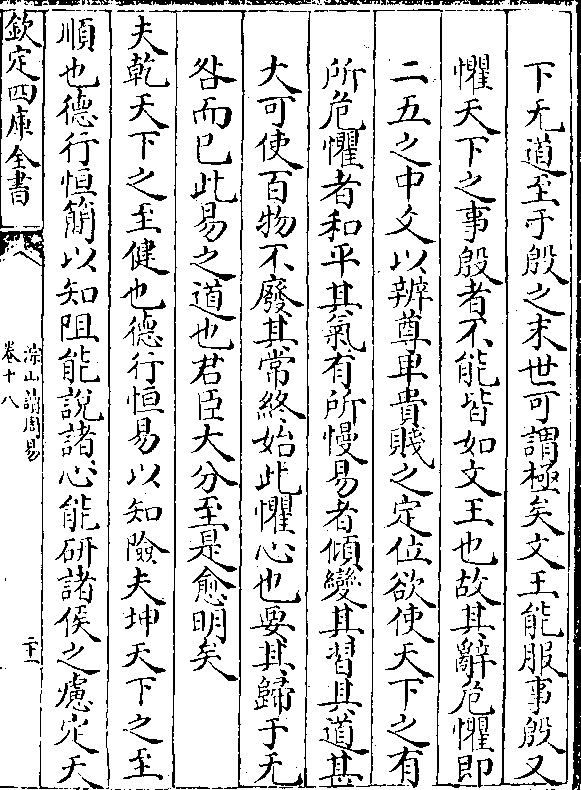 下无道至于殷之末世可謂極矣文王能服事殷又
懼天下之事殷者不能皆如文王也故其辭危懼即
二五之中爻以辨尊卑貴賤之定位欲使天下之有
所危懼者和平其氣有所慢易者傾變其習其道甚
大可使百物不廢其常終始此懼心也要其歸于无
咎而已此易之道也君臣大分至是愈明矣
夫乾天下之至健也德行恒易以知險夫坤天下之至
順也德行恒簡以知阻能說諸心能研諸侯之慮定天
欽定四庫全書
淙山讀周易
卷十八
二十一